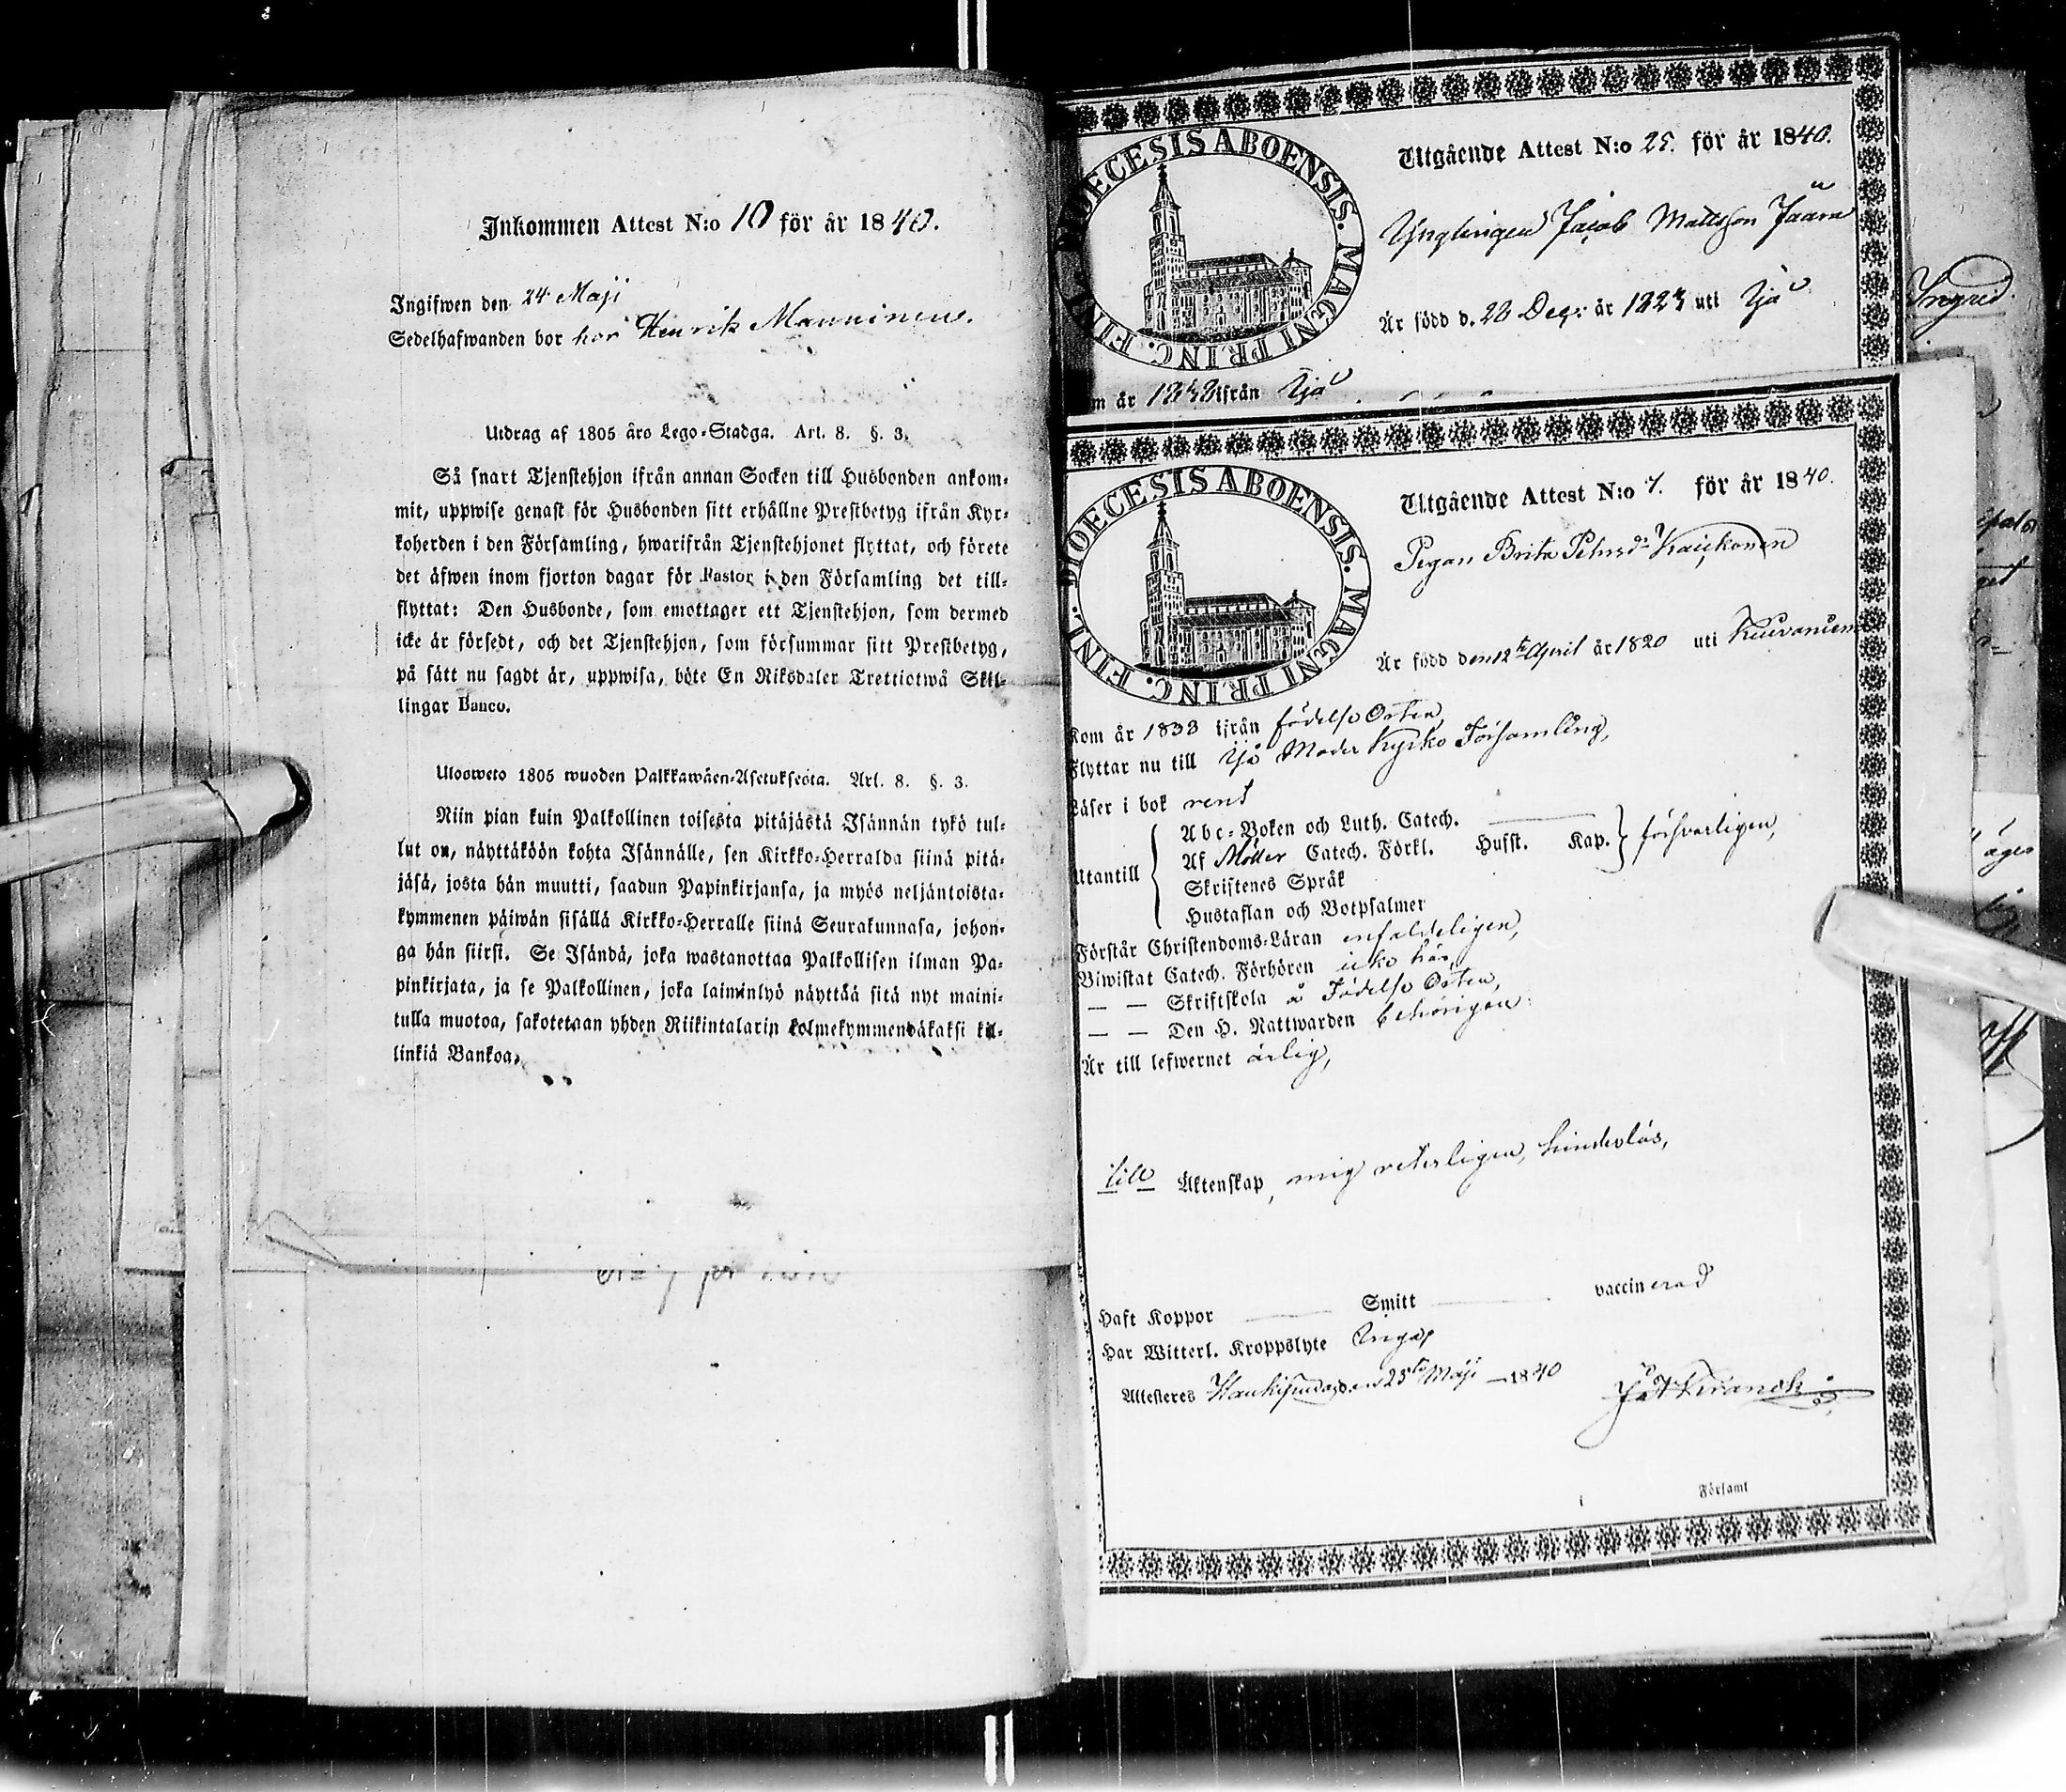 Inkommen Attest N:o 10 för år 1840.
Ingifwen den 24 Maji
Sedelhafwanden bor hos Henrik Manninen.
Utdrag af 1805 års Lego-Stadga. Art. 8. §. 3.
Så snart Tjenstehjon ifrån annan Socken till Husbonden ankom-
mit, uppwise genast för Husbonden sitt erhållne Prestbetyg ifrån Kyr-
koherden i den Församling, hwarifrån Tjenstehjonet flyttat, och förete
det äfwen inom fjorton dagar för Pastor i den Församling det till-
flyttat: Den Husbonde, som emottager ett Tjenstehjon, som dermed
icke är försedt, och det Tjenstehjon, som försummar sitt Prestbetyg,
på sätt nu sagdt är, uppwisa, böte En Riksdaler Trettiotwå Skil-
lingar Banco.
Ulosweto 1805 wuoden Palkkawäen-Asetuksesta. Art. 8. §. 3.
Niin pian kuin Palkollinen toisesta pitäjästä Isännän tykö tul-
lut on, näyttäköön kohta Isännälle, sen Kirkko-Herralda siinä pitä-
jäsä, josta hän muutti, saadun Papinkirjansa, ja myös neljäntoista-
kymmenen päiwän sisällä Kirkko-Herralle siinä Seurakunnasa, johon-
ga hän siirsi. Se Isändä, joka wastanottaa Palkollisen ilman Pa-
pinkirjata, ja se Palkollinen, joka laiminlyö näyttää sitä nyt maini-
tulla muotoa, sakotetaan yhden Riikintalarin kolmekymmendäkaksi kil-
linkiä Bankoa.
DIOECESIS ABOENSIS. MAGNI PRINC. FINL.
Utgående Attest N:o 25. för år 1840.
Ynglingen Jacob Mattsson
Är född d. 20 Dec: är 1823 uti Ijå
om år ifrån Ijå
DIOECESIS ABOENSIS. MAGNI PRINC. FINL.
Utgående Attest N:o 7. för år 1840.
Pigan Brita Petersd:r
Är född den 12te April år 1820 uti Kuivaniemi
Kom år 1833 ifrån födelse Orten,
Flyttar nu till Ijå Moder Kyrko Församling,
Läser i bok rent
Abc-Boken och Luth. Catech.
Utantill Af Möller Catech. Förkl. Husst. Kap. försvarligen,
Skriftenes Språk
Hustaflan och Botpsalmer
Förstår Christendoms-Läran enfaldeligen,
Biwistat Catech. Förhören icke här,
— — Skriftskola å Födelse Orten,
— — Den H. Nattwarden behörigen
Är till lefwernet ärlig,
till Äktenskap, mig veterligen, hinderlös,
Haft Koppor Smitt vaccinerad
Har Witterl. Kroppslyte Inga,
Attesteras den 23de Maji 1840
i Församl
Ingrid